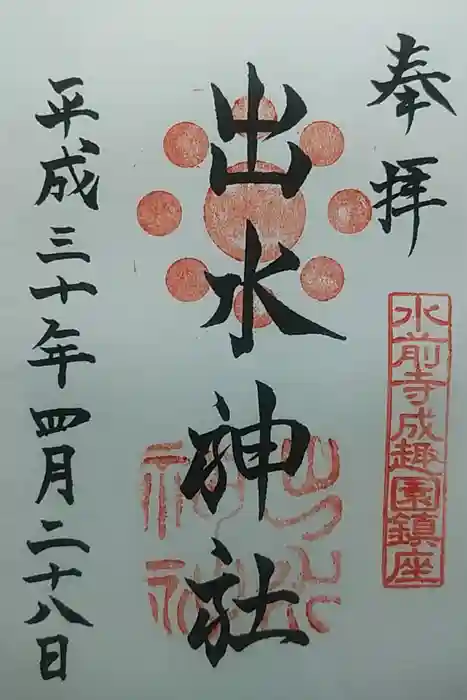 奉拝
水前寺成趣園鎮座
出水神社
平成三十年四月二十八日